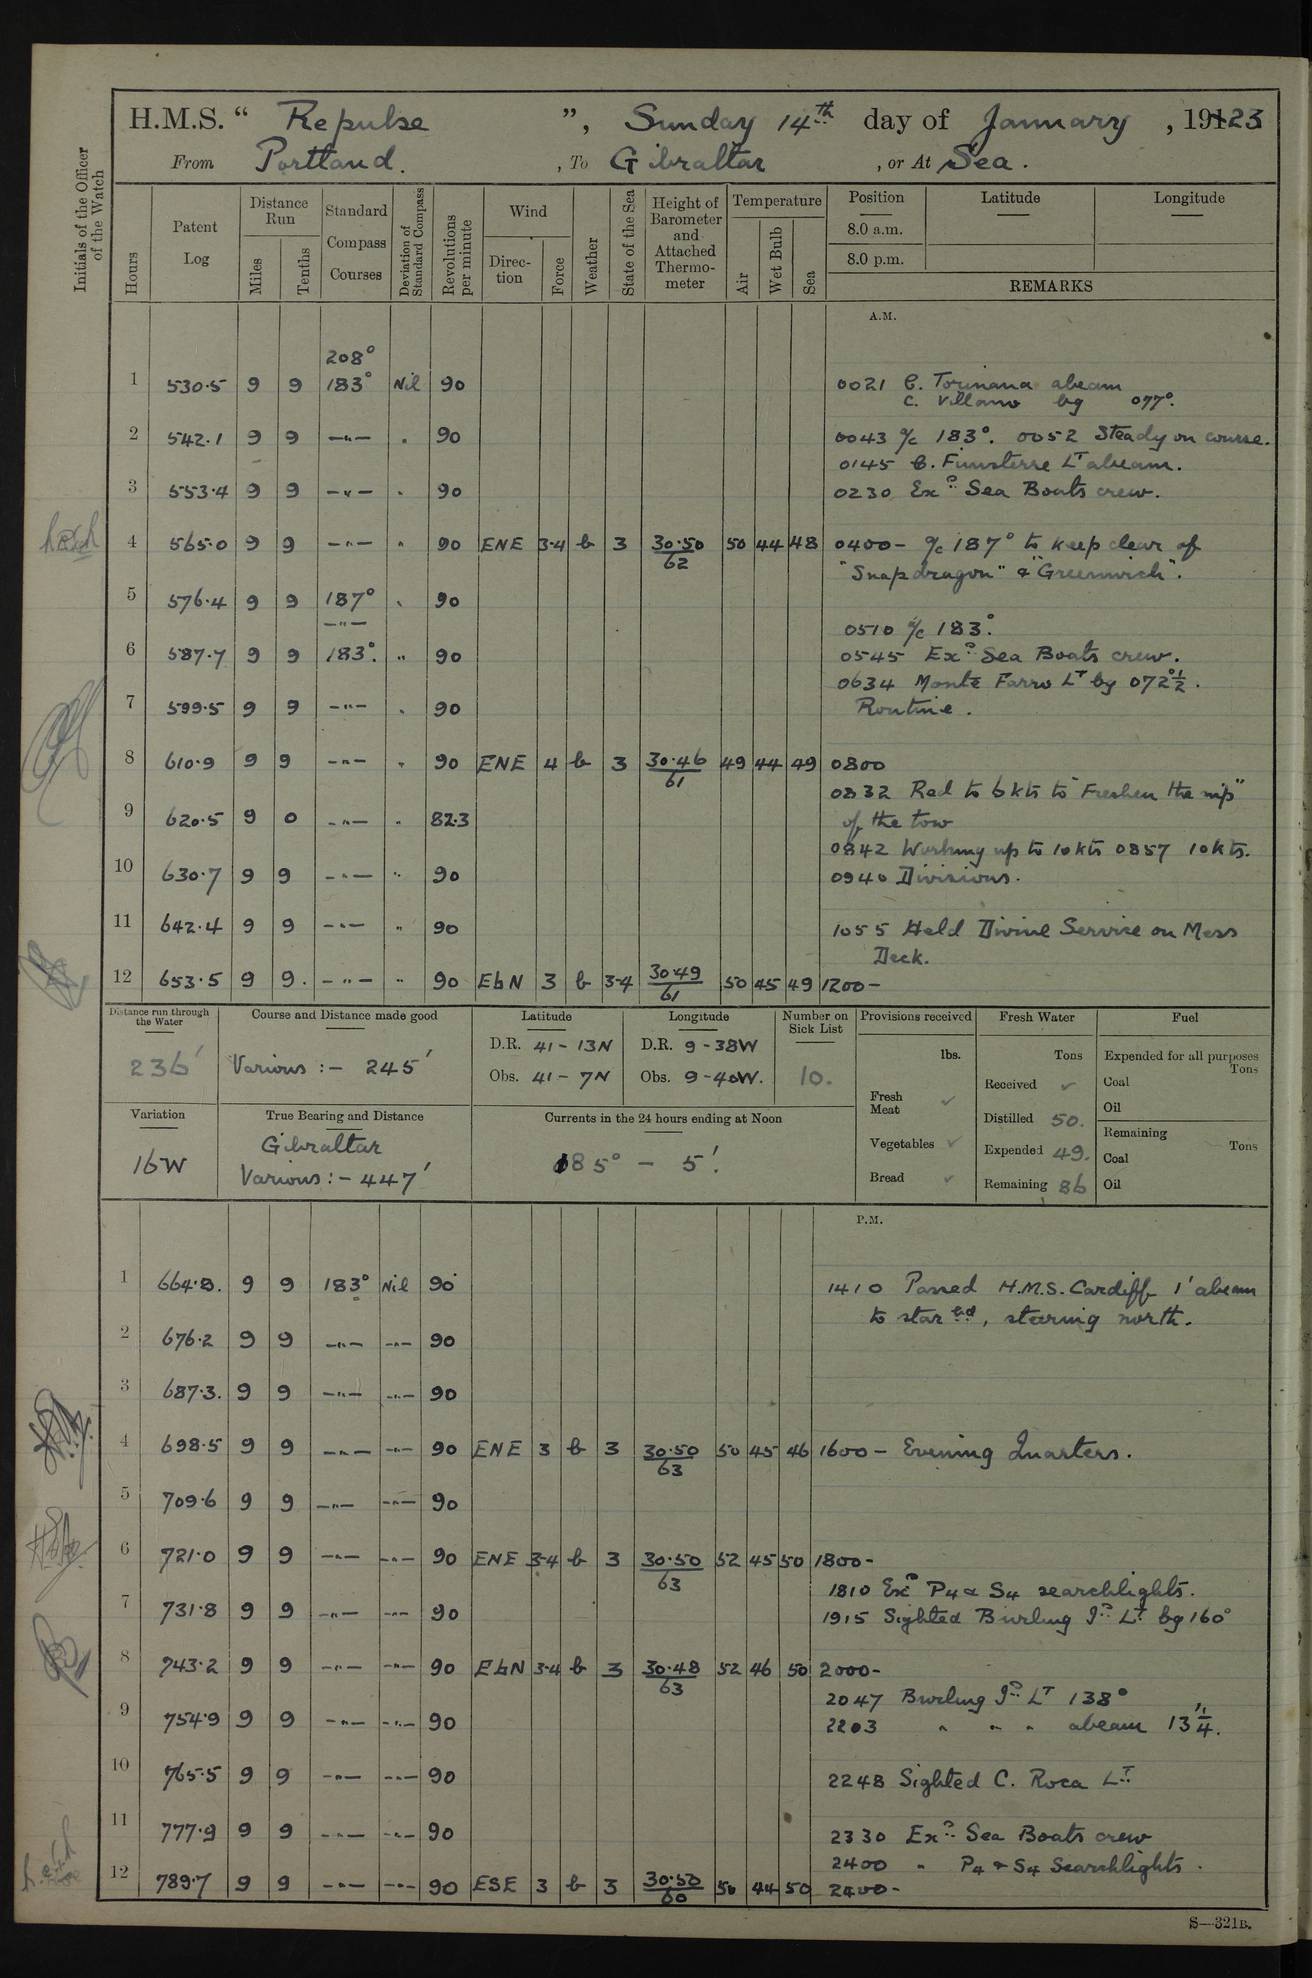 H.M.S. “ Repulse ”, Sunday 14th day of January, 19123
From Portland. , To Gibraltar , or At Sea.
Initials of the Officer of the Watch
Hours
Patent Log
Distance Run
Miles
Tenths
Standard Compass Courses
Deviation of Standard Compass
Revolutions per minute
Wind
Direction
Force
Weather
State of the Sea
Height of Barometer and Attached Thermometer
Temperature
Air
Wet Bulb
Sea
Position
8.0 a.m.
8.0 p.m.
Latitude
Longitude
REMARKS
A.M.
208°
1 530.5 9 9 183° Nil 90 0021 C. Torinana abeam
C. Villano bg 077°.
2 542.1 9 9 —"— . 90 0043 a/c 183°. 0052 Steady on course.
0145 C. Finisterre Lt abeam.
3 553.4 9 9 —"— . 90 0230 Exd Sea Boats crew.
4 565.0 9 9 —"— " 90 ENE 3-4 b 3 30.50/62 50 44 48 0400 – a/c 187° to keep clear of
"Snapdragon" & "Greenwich".
5 576.4 9 9 187° . 90
—"— 0510 a/c 183°.
6 587.7 9 9 183°. " 90 0545 Exd Sea Boats crew.
0634 Monte Farro Lt bg 072°½.
7 599.5 9 9 —"— . 90 Routine.
8 610.9 9 9 —"— " 90 ENE 4 b 3 30.46/61 49 44 49 0800
0832 Red to 6 kts to "Freshen the nip"
9 620.5 9 0 —"— " 82.3 of the tow
0842 Working up to 10kts 0857 10kts.
10 630.7 9 9 —"— " 90 0940 Divisions.
11 642.4 9 9 —"— " 90 1055 Held Divine Service on Mess
Deck.
12 653.5 9 9. —"— " 90 EbN 3 b 3-4 30.49/61 50 45 49 1200 –
Distance run through the Water
236'
Course and Distance made good
Various :– 245'
Latitude
D.R. 41 – 13N
Obs. 41 – 7N
Longitude
D.R. 9 – 38W
Obs. 9 – 40W.
Number on Sick List
10.
Provisions received
lbs.
Fresh Meat ✓
Vegetables ✓
Bread ✓
Fresh Water
Tons
Received ✓
Distilled 50.
Expended 49.
Remaining 86
Fuel
Expended for all purposes
Tons
Coal
Oil
Remaining
Tons
Coal
Oil
Variation
16W
True Bearing and Distance
Gibraltar
Various :– 447'
Currents in the 24 hours ending at Noon
185° – 5'.
P.M.
1 664.8. 9 9 183° Nil 90 1410 Passed H.M.S. Cardiff 1' abeam
to starbd, steering north.
2 676.2 9 9 —"— —"— 90
3 687.3. 9 9 —"— —"— 90
4 698.5 9 9 —"— —"— 90 ENE 3 b 3 30.50/63 50 45 46 1600 – Evening Quarters.
5 709.6 9 9 —"— —"— 90
6 721.0 9 9 —"— —"— 90 ENE 3-4 b 3 30.50/63 52 45 50 1800 –
1810 Exd P4 & S4 searchlights.
7 731.8 9 9 —"— —"— 90 1915 Sighted Burling Id Lt bg 160°
8 743.2 9 9 —"— —"— 90 EbN 3-4 b 3 30.48/63 52 46 50 2000 –
2047 Burling Id Lt 138°
9 754.9 9 9 —"— —"— 90 2203 " " " abeam 13'¼.
10 765.5 9 9 —"— —"— 90 2248 Sighted C. Roca Lt
11 777.9 9 9 —"— —"— 90 2330 Exd Sea Boats crew
2400 " P4 & S4 Searchlights.
12 789.7 9 9 —"— —"— 90 ESE 3 b 3 30.50/60 50 44 50 2400 –
S—321B.